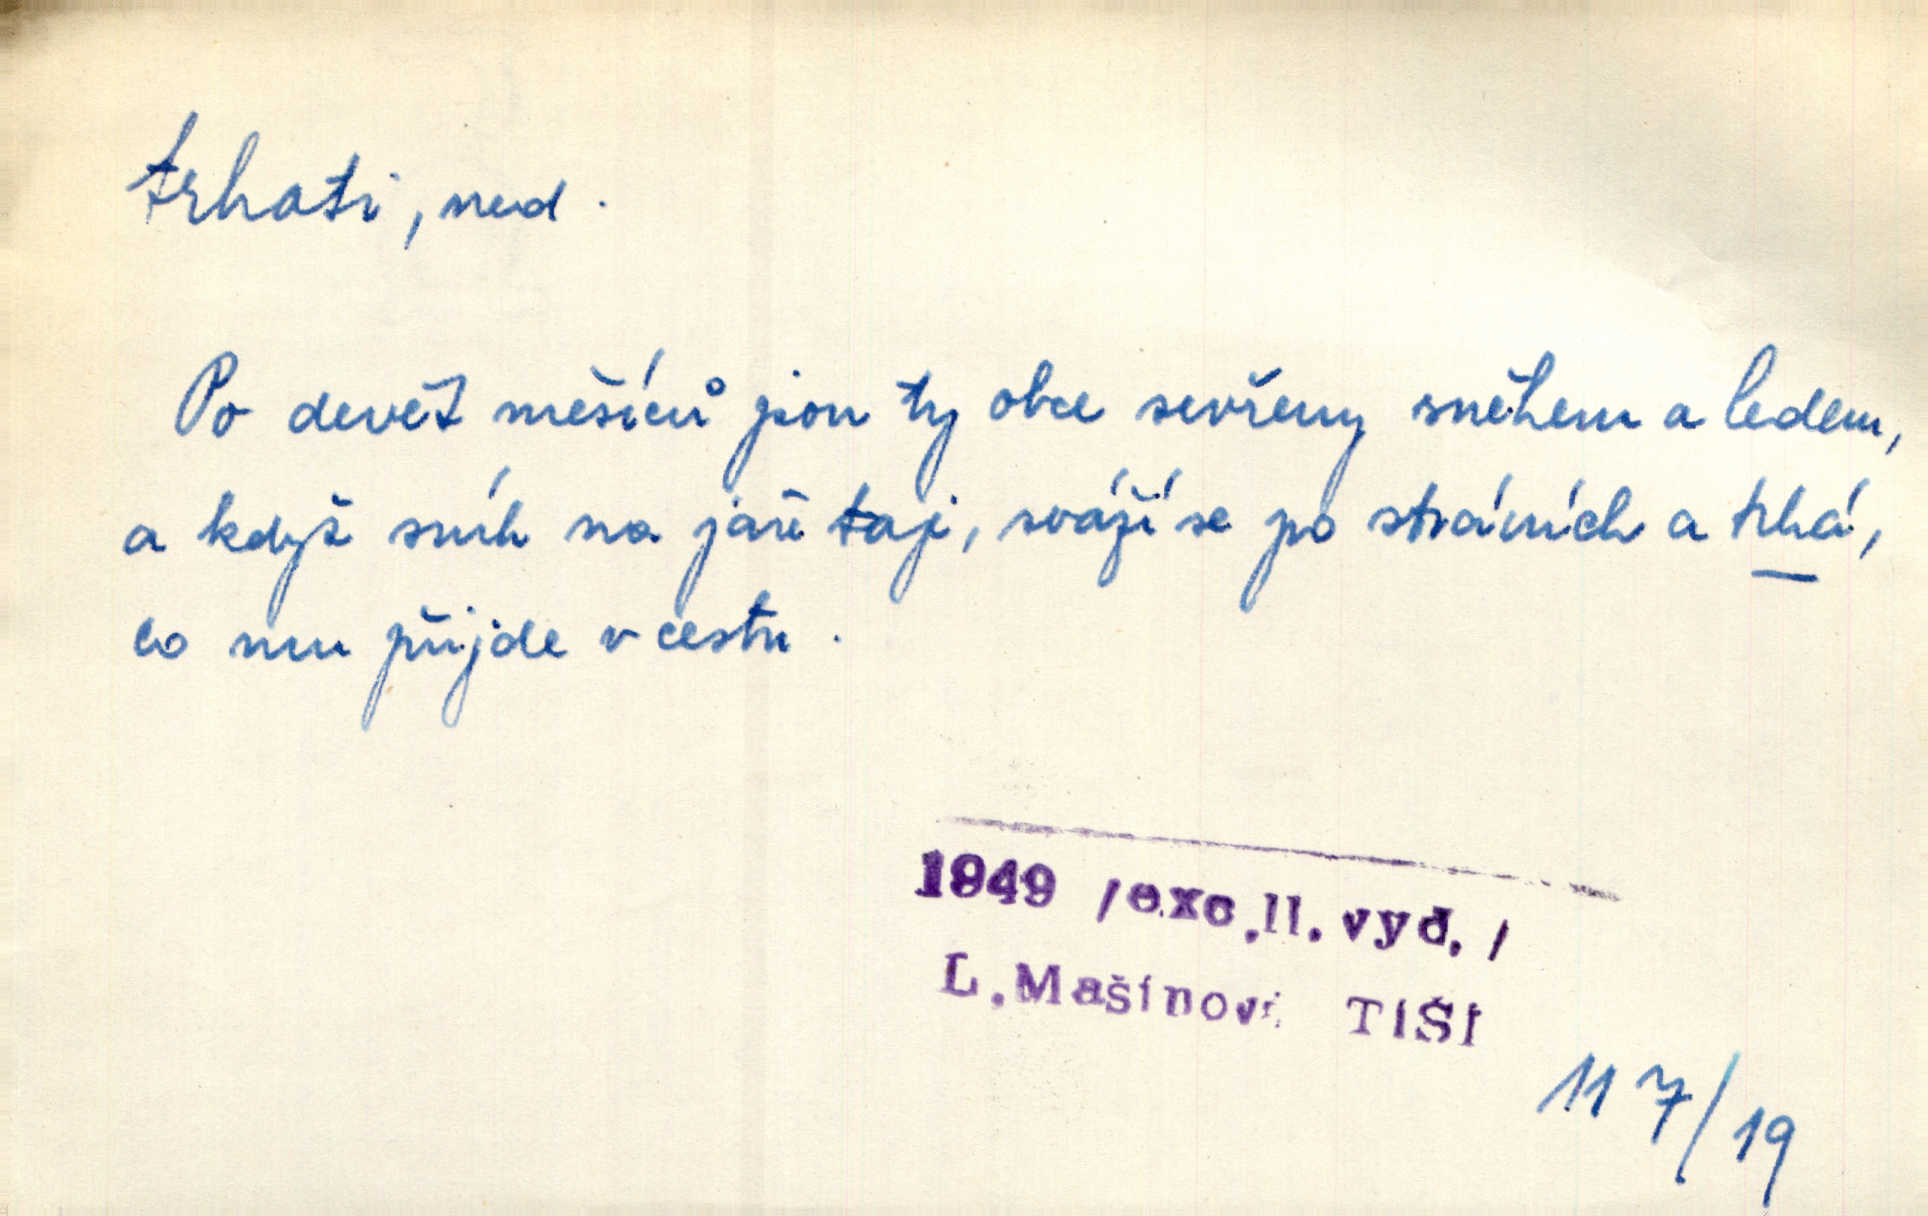 trhati, ned.
Po devět měsíců jsou ty obce sevřeny sněhem a ledem,
a když sníh na jaře taje, sváží se po stráních a trhá,
co mu přijde v cestu.
1949 /exc.II.vyd./
L.Mašínová TIŠI
117/19